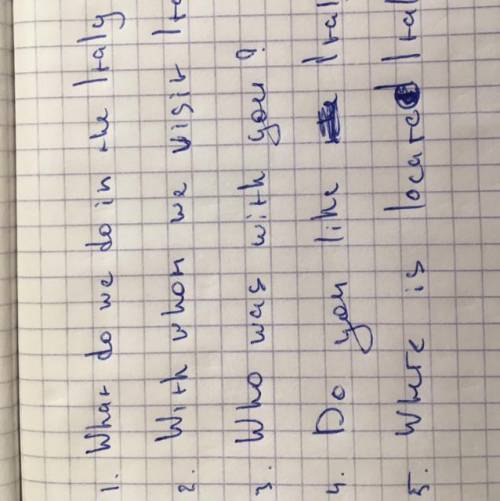 1. What do we do in the Italy
2. With whom we visit
3. Who was with you?
4. Do you like
5. Where is located